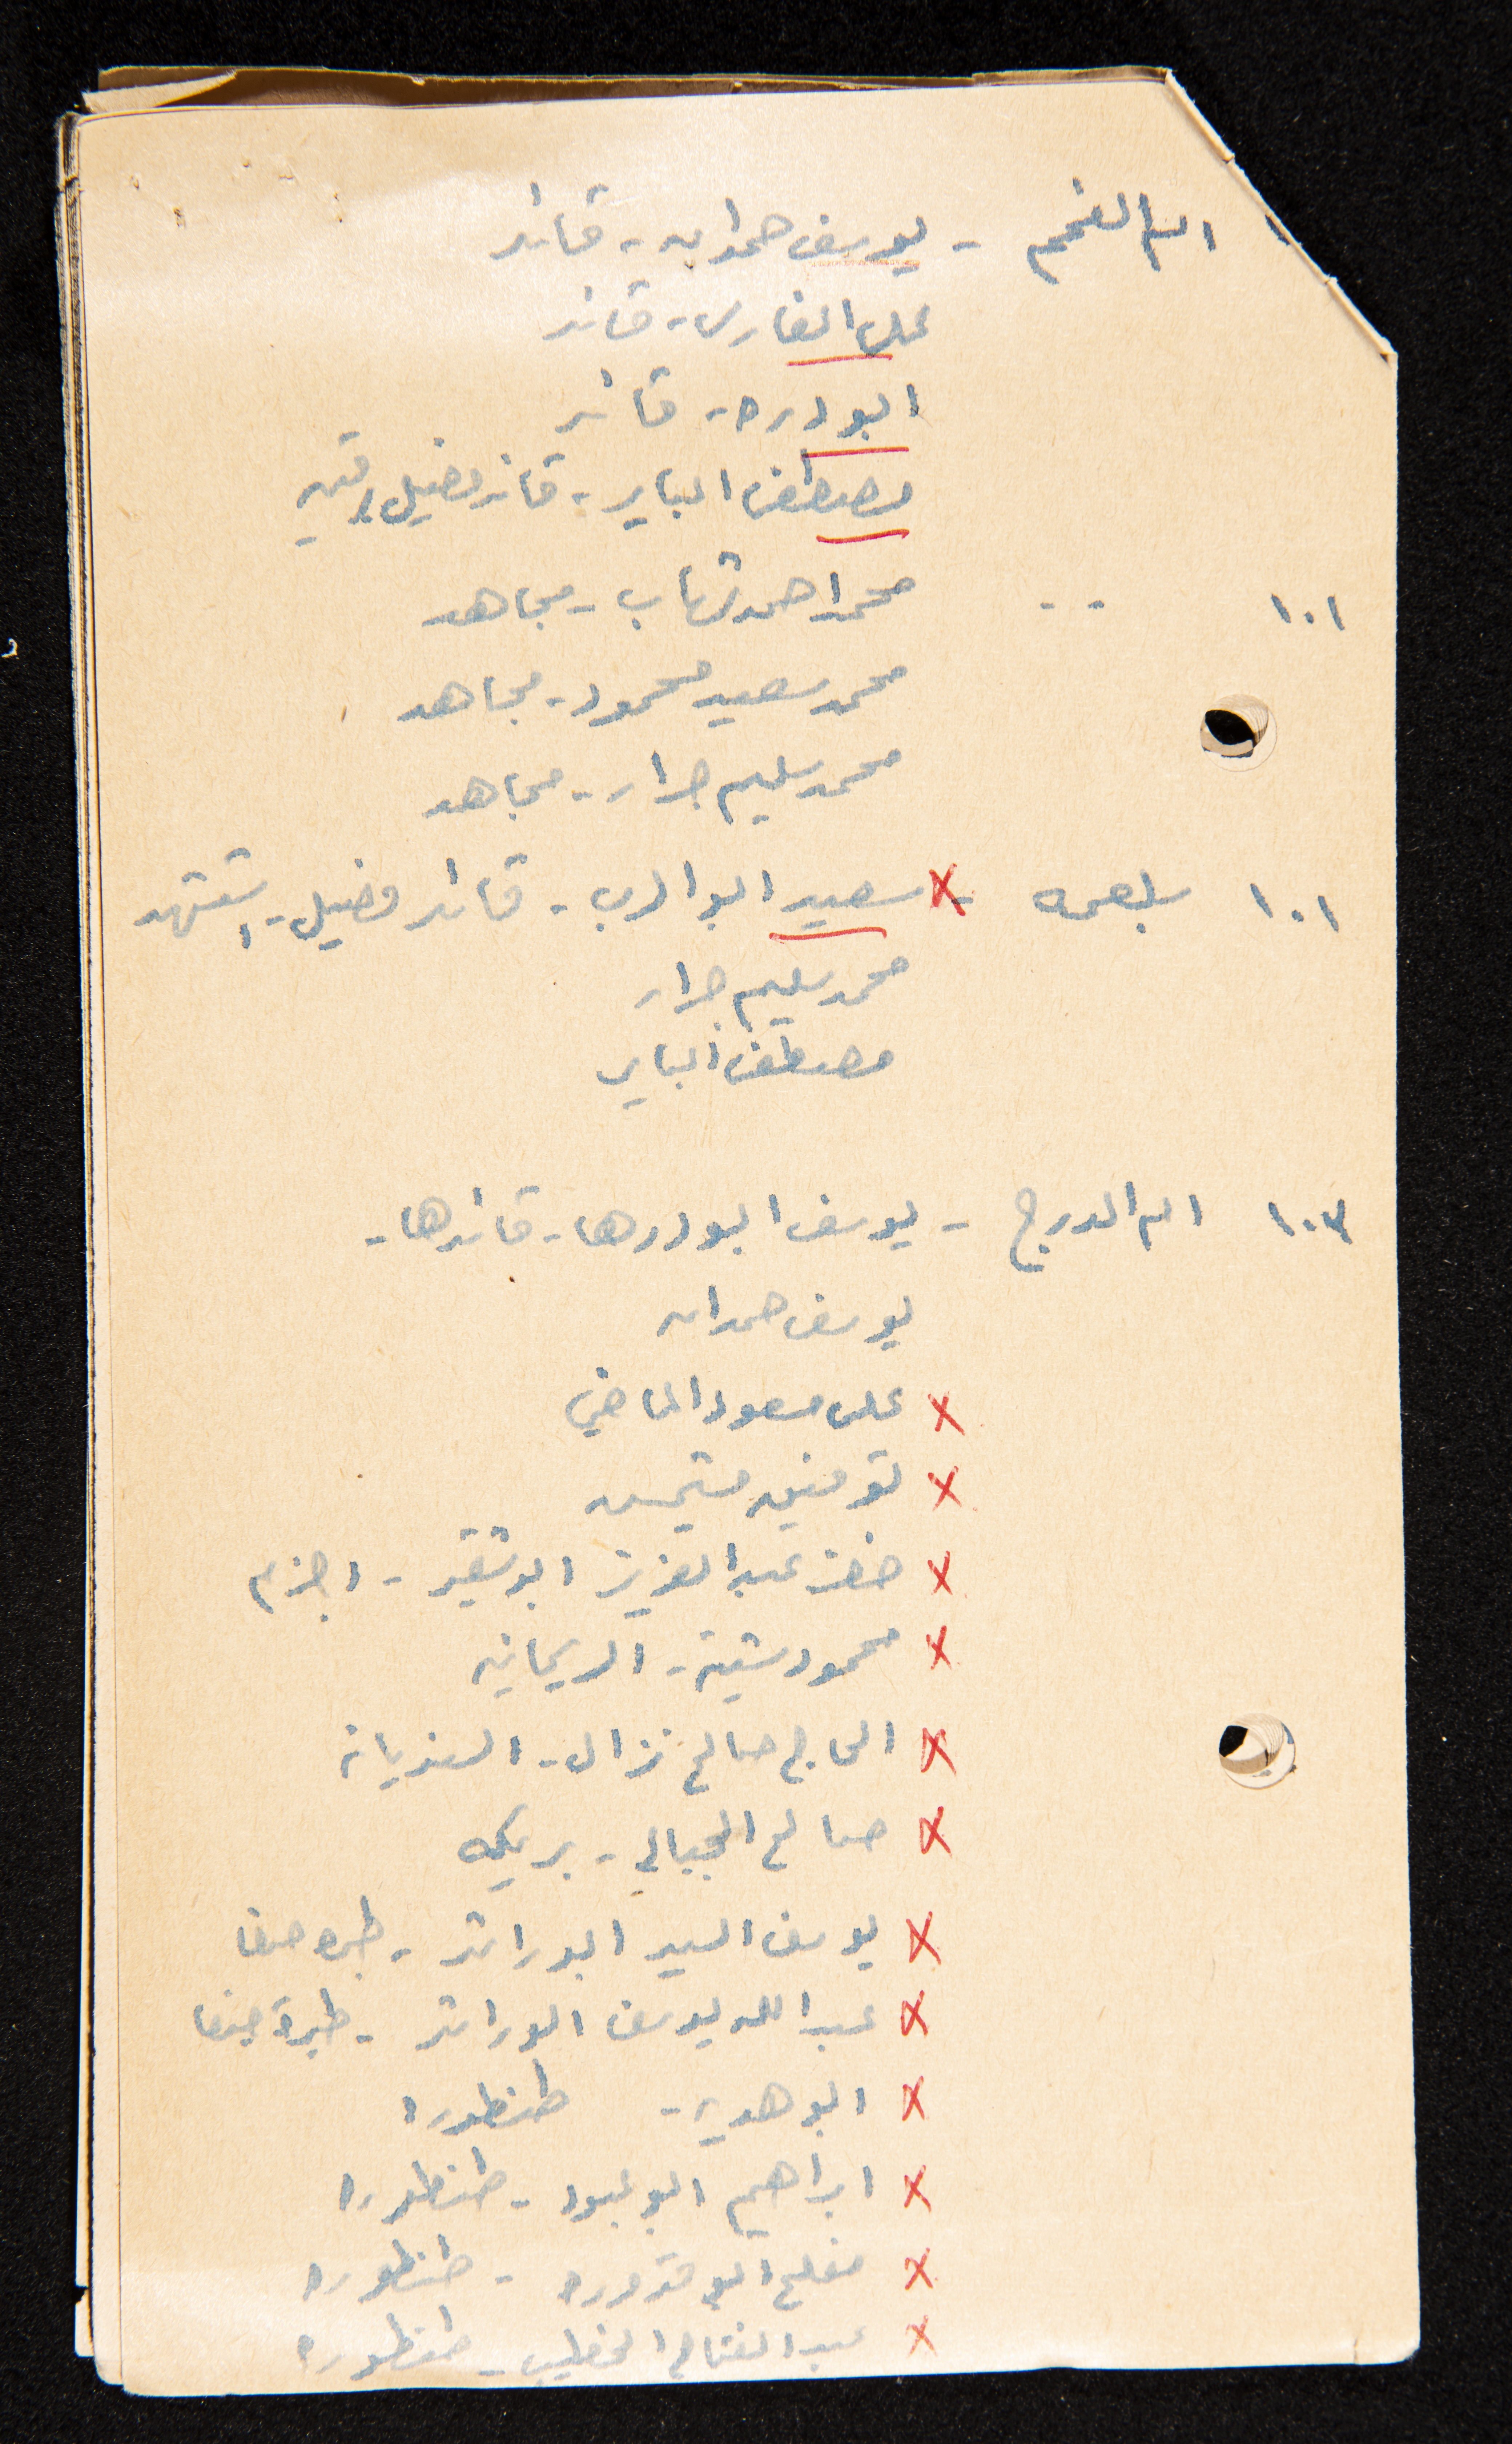 ام الفحم - يوسف حمدان - قائد
علي الفارس - قائد
ابو دره - قائد
مصطفى الباير - قائد فصيل
١٠١ " " محمد احمد شهاب - مجاهد
محمد سعيد محمود - مجاهد
محمد سليم جرار - مجاهد
١٠١ بلعمه - × سعيد ابو الرب - قائد فصيل - استشهد
محمد سليم جرار
مصطفى الباير
١٠٣ ام الدرج - يوسف ابو درها - قائدها -
يوسف حمدان
× علي مسعود الماضي
× توفيق
× خضر عبد العزيز ابو شقير - اجزم
× محمود شتيه - الريحانيه
× الحاج صالح نزال - السنديانه
× صالح الجبالي - بريكه
× يوسف السيد ابو راشد - طيره حيفا
× عبد الله يوسف ابو راشد - طيرة حيفا
× ابو هديه - طنطوره
× ابراهيم ابو عبود - طنطوره
× مفلح ابو - طنطوره
× عبد الفتاح الخطيب - طنطوره